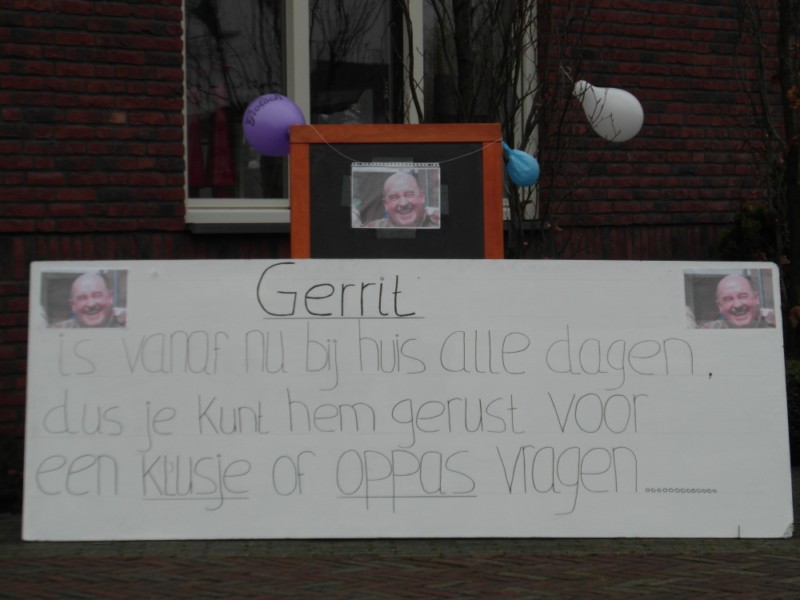 Gerrit
is vanaf nu bij huis alle dagen,
dus je kunt hem gerust voor
een klusje of oppas vragen.............